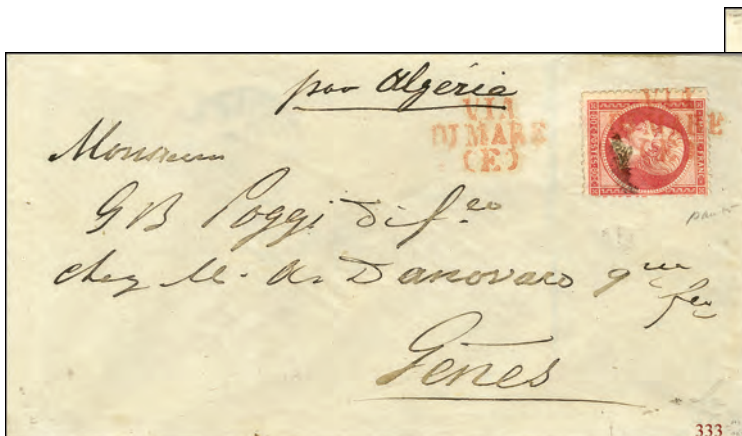 par Algéria
VIA
DI MARE
(E)
Monsieur
GB Poggi di f.co
chez M. A. Danovaro q.m
Gênes
333